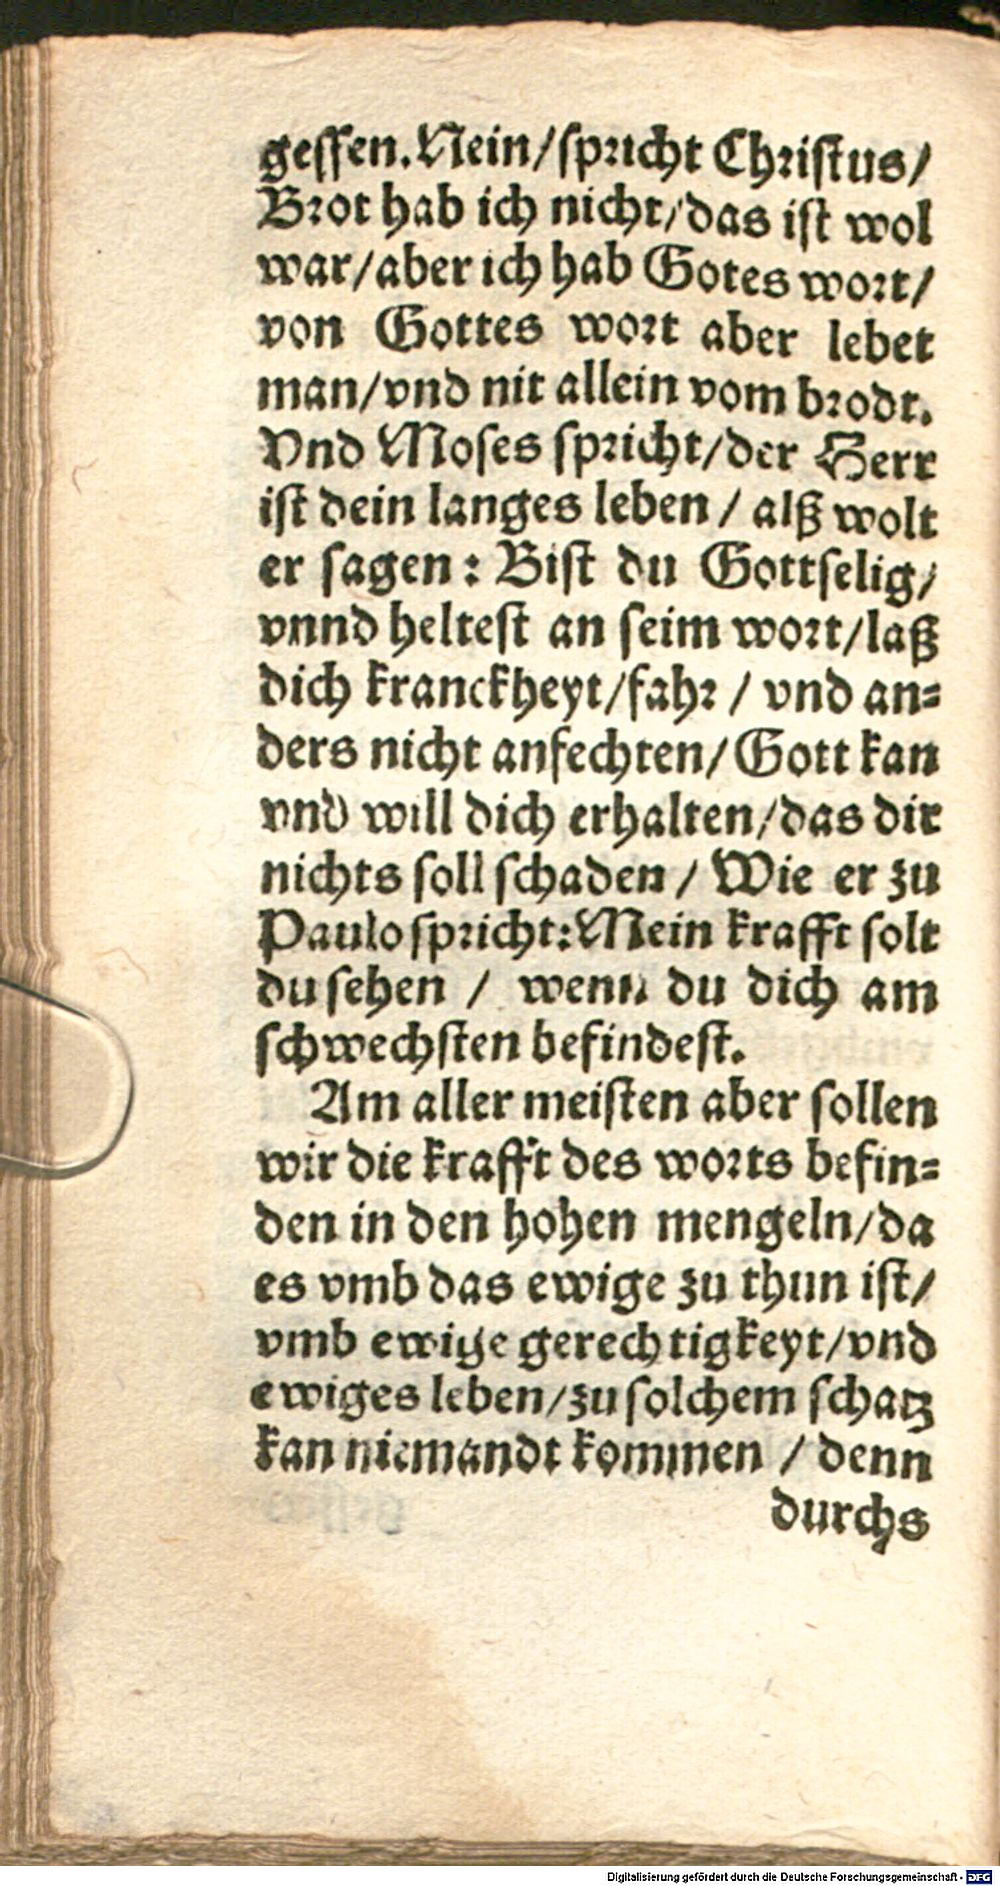 gessen. Nein/ spricht Christus/
Brot hab ich nicht/ das ist wol
war/ aber ich hab Gotes wort/
von Gottes wort aber lebet
man/ vnd nit allein vom brodt.
Vnd Moses spricht/ der Herr
ist dein langes leben / alß wolt
er sagen: Bist du Gottselig/
vnnd heltest an seim wort/ laß
dich kranckheyt/ fahr / vnd an=
ders nicht anfechten/ Gott kan
vnd will dich erhalten/ das dir
nichts soll schaden / Wie er zu
Paulo spricht: Mein krafft solt
du sehen / wenn du dich am
schwechsten befindest.
Am aller meisten aber sollen
wir die krafft des worts befin=
den in den hohen mengeln/ da
es vmb das ewige zu thun ist/
vmb ewige gerechtigkeyt/ vnd
ewiges leben/ zu solchem schatz
kan niemandt kommen / denn
durchs
Digitalisierung gefördert durch die Deutsche Forschungsgemeinschaft - DFG